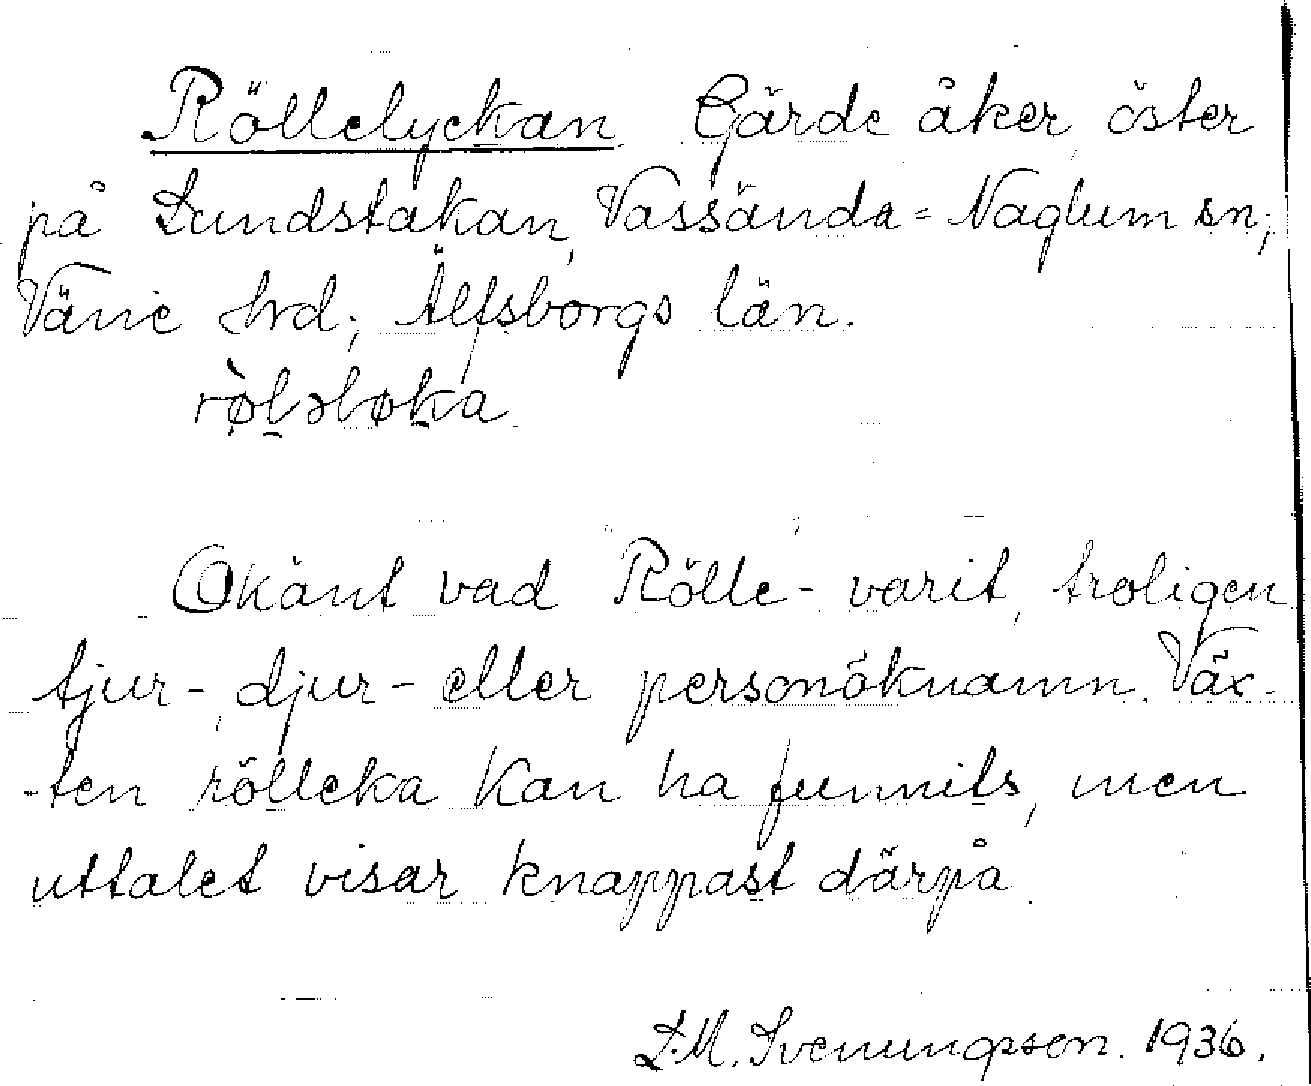 Röllelyckan. Gärde åker öster
på Lundstakan, Vassända-Naglum sn;
Väne hrd; Älfsborgs län.
rø̀lələka
Okänt vad Rölle- varit, troligen
tjur-, djur- eller personöknamn. Väx-
-ten rölleka kan ha funnits, men
uttalet visar knappast därpå.
L.M. Svenungsson. 1936.